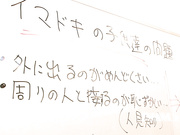 イマドキの子供達の問題
・外に出るのがめんどくさい
・周りの人と喋るのが恥ずかしい
(人見知り)